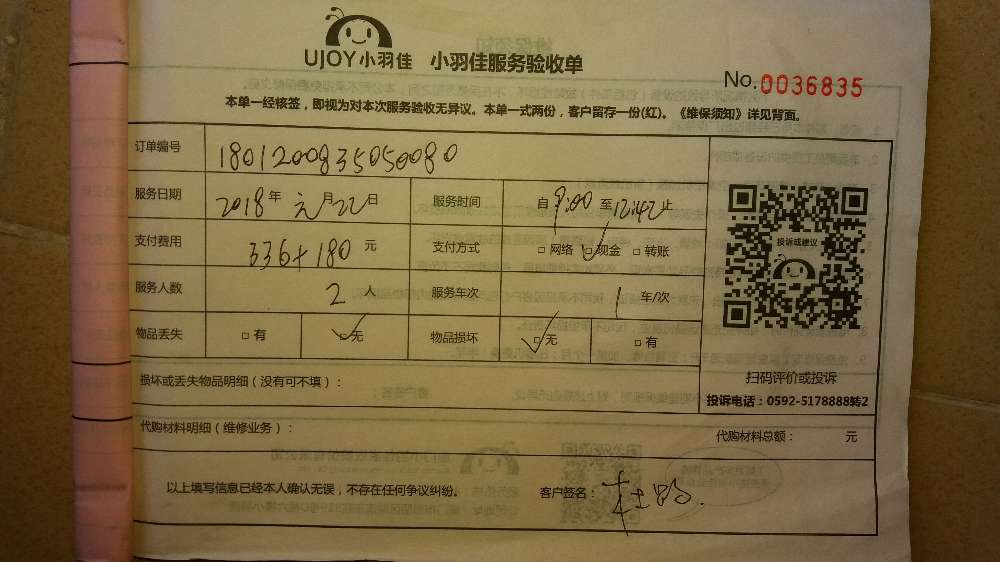 UJOY小羽佳 小羽佳服务验收单
No.0036835
本单一经核签，即视为对本次服务验收无异议。本单一式两份，客户留存一份(红)。《维保须知》详见背面。
订单编号 1801200835050080
服务日期 2018年 元月22日 服务时间 自9:00至12:42止
支付费用 336+180元 支付方式 □网络 ☑现金 □转账
服务人数 2人 服务车次 1车/次
物品丢失 □有 ☑无 物品损坏 ☑无 □有
投诉或建议
扫码评价或投诉
投诉电话：0592-5178888转2
损坏或丢失物品明细（没有可不填）：
代购材料明细（维修业务）： 代购材料总额： 元
以上填写信息已经本人确认无误，不存在任何争议纠纷。 客户签名：